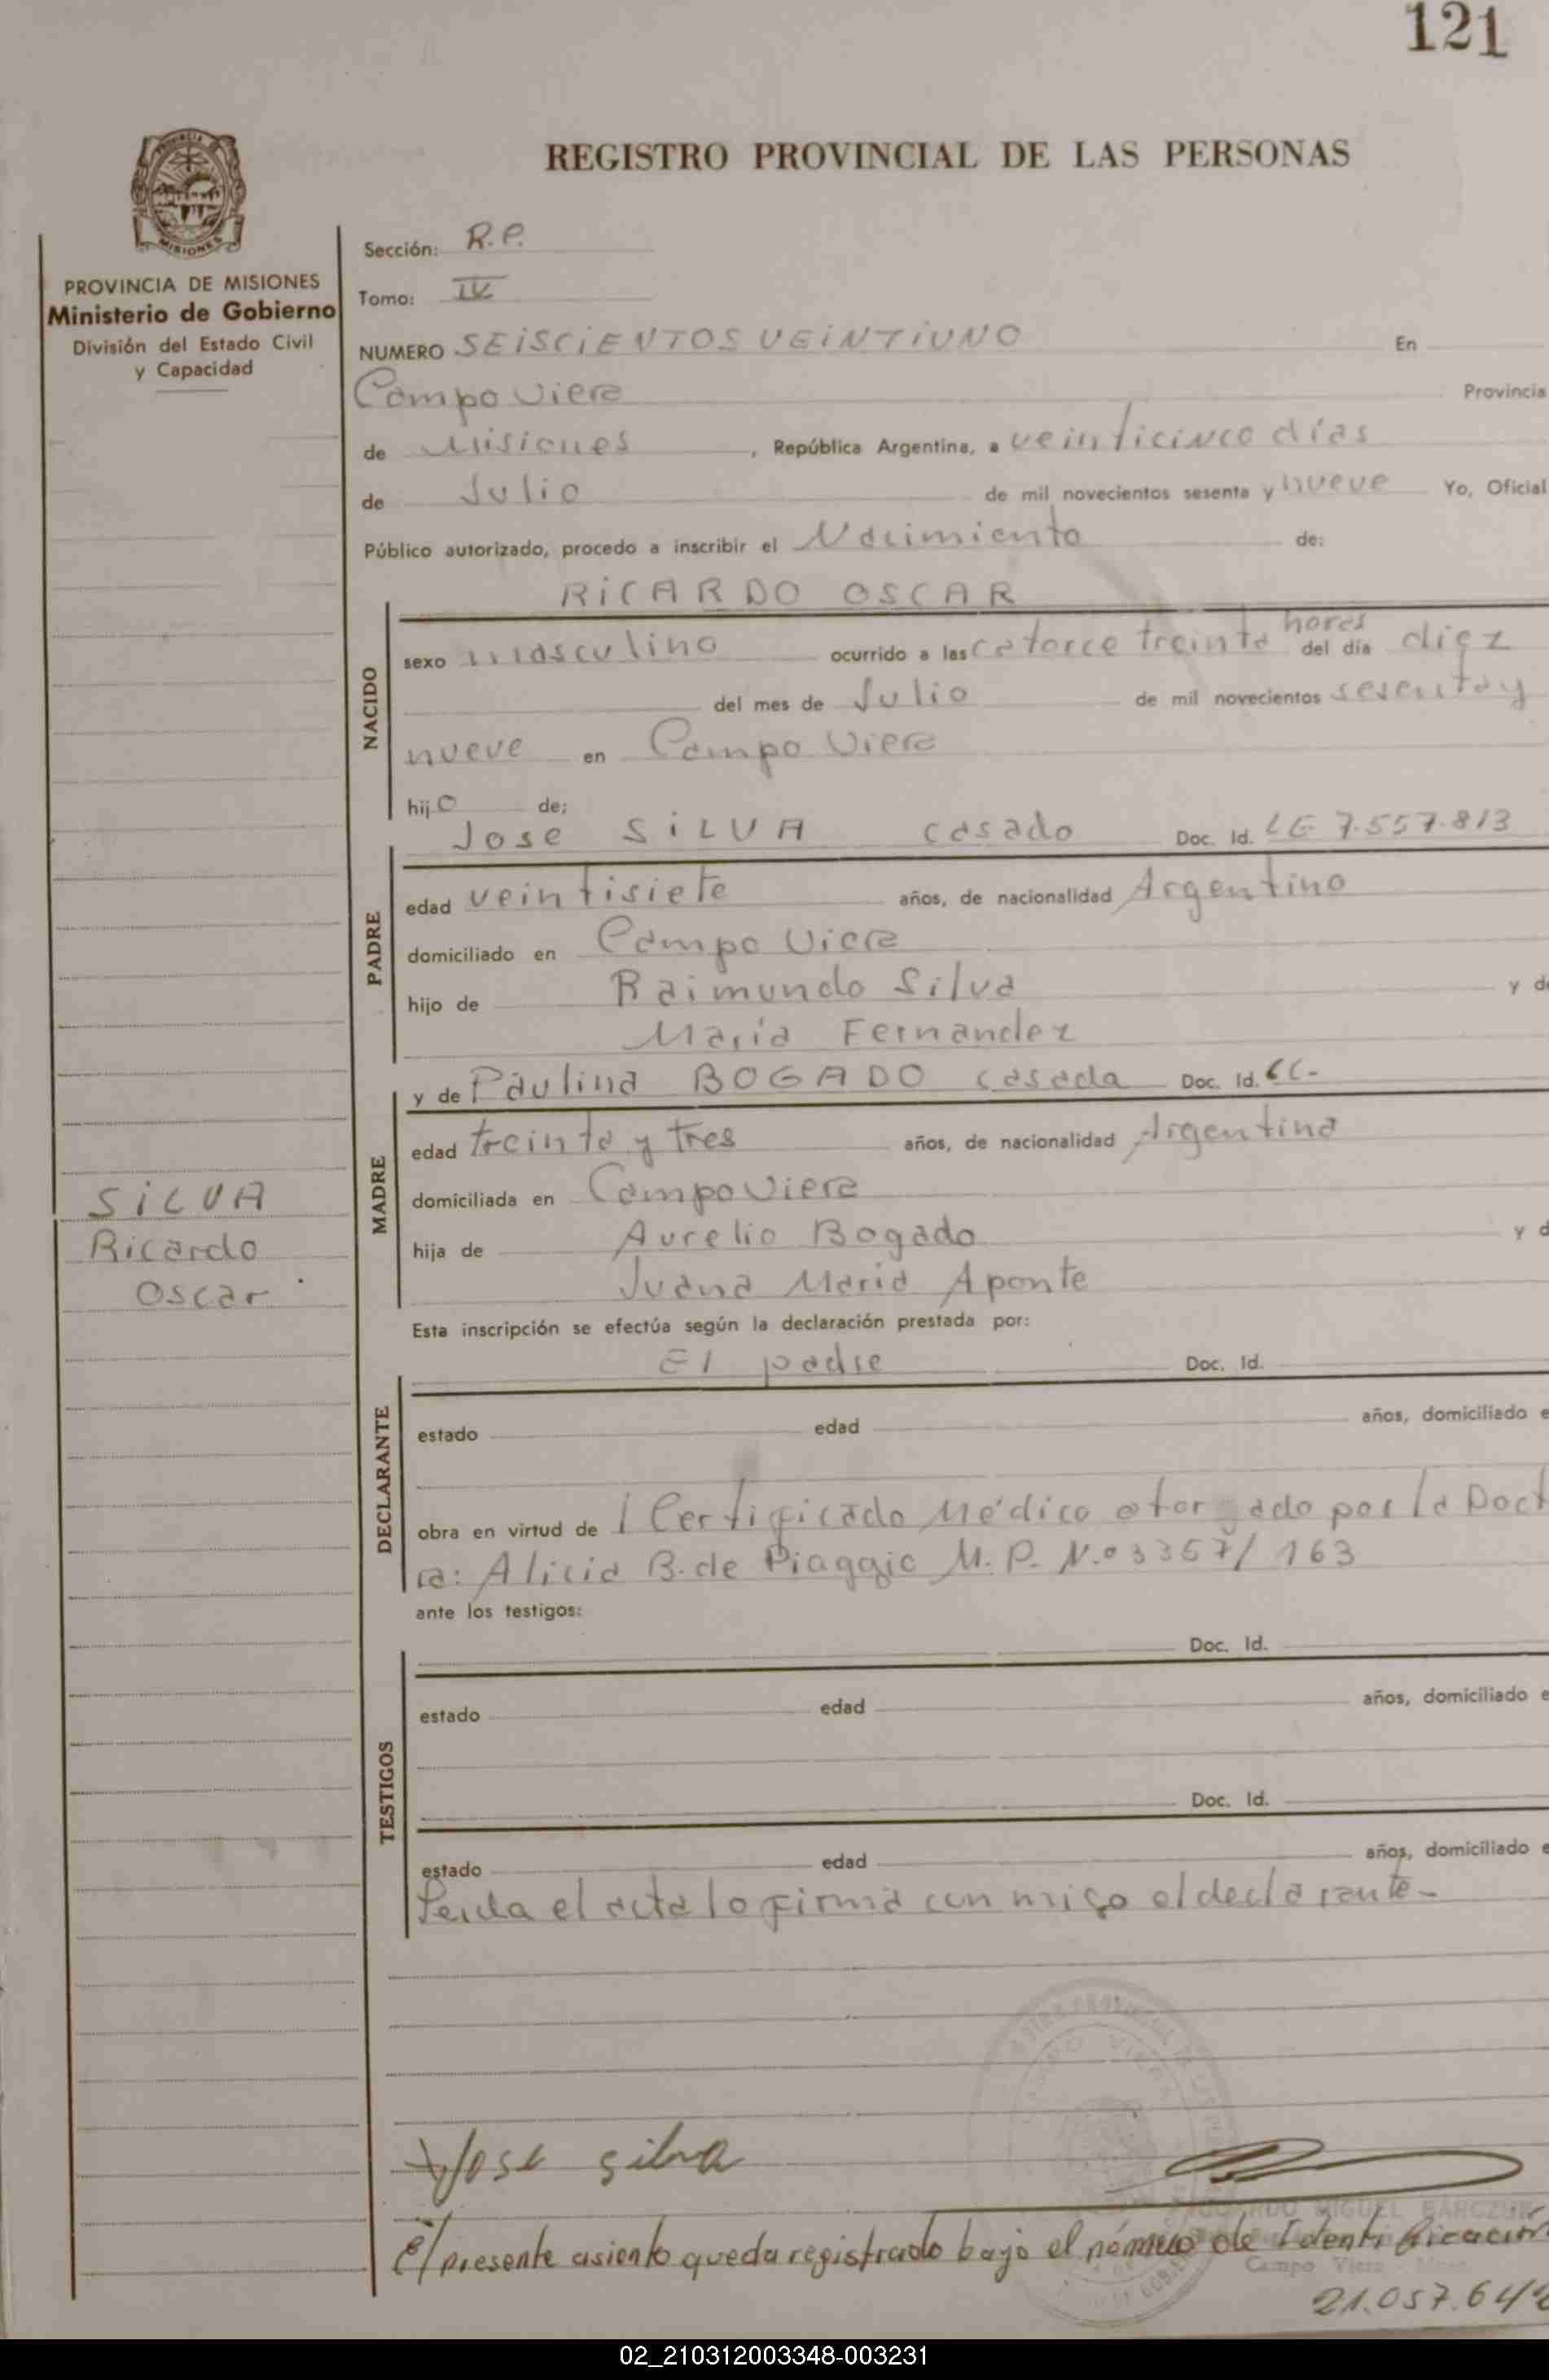 121
REGISTRO PROVINCIAL DE LAS PERSONAS
PROVINCIA DE MISIONES
Ministerio de Gobierno
División del Estado Civil
y Capacidad
Sección: R.P.
Tomo: IV
NUMERO SEISCIENTOS VEINTIUNO En
Campo Viera Provincia
de Misiones, República Argentina, a veinticinco días
de Julio de mil novecientos sesenta y nueve Yo, Oficial
Público autorizado, procedo a inscribir el Nacimiento de:
RICARDO OSCAR
NACIDO
sexo masculino ocurrido a las catorce treinta horas del día diez
del mes de Julio de mil novecientos sesenta y
nueve en Campo Viera
hijo de:
Jose SILVA casado Doc. Id. LE 7.557.813
PADRE
edad veintisiete años, de nacionalidad Argentino
domiciliado en Campo Viera
hijo de Raimundo Silva y d
María Fernandez
y de Paulina BOGADO casada Doc. Id. CC-
MADRE
edad treinta y tres años, de nacionalidad Argentina
domiciliada en Campo Viera
hija de Aurelio Bogado y d
Juana Maria Aponte
SILVA
Ricardo
Oscar
Esta inscripción se efectúa según la declaración prestada por:
El padre Doc. Id.
DECLARANTE
estado edad años, domiciliado e
obra en virtud de 1 Certificado Médico otorgado por la Doct
ra: Alicia B. de Piaggio M.P. N.o 3357/163
ante los testigos:
Doc. Id.
TESTIGOS
estado edad años, domiciliado e
Doc. Id.
estado edad años, domiciliado e
Leida el acta lo firma conmigo el declarante-
Jose Silva
MIGUEL
Campo Viera
El presente asiento queda registrado bajo el número de Identificación
21.057.64
02_210312003348-003231